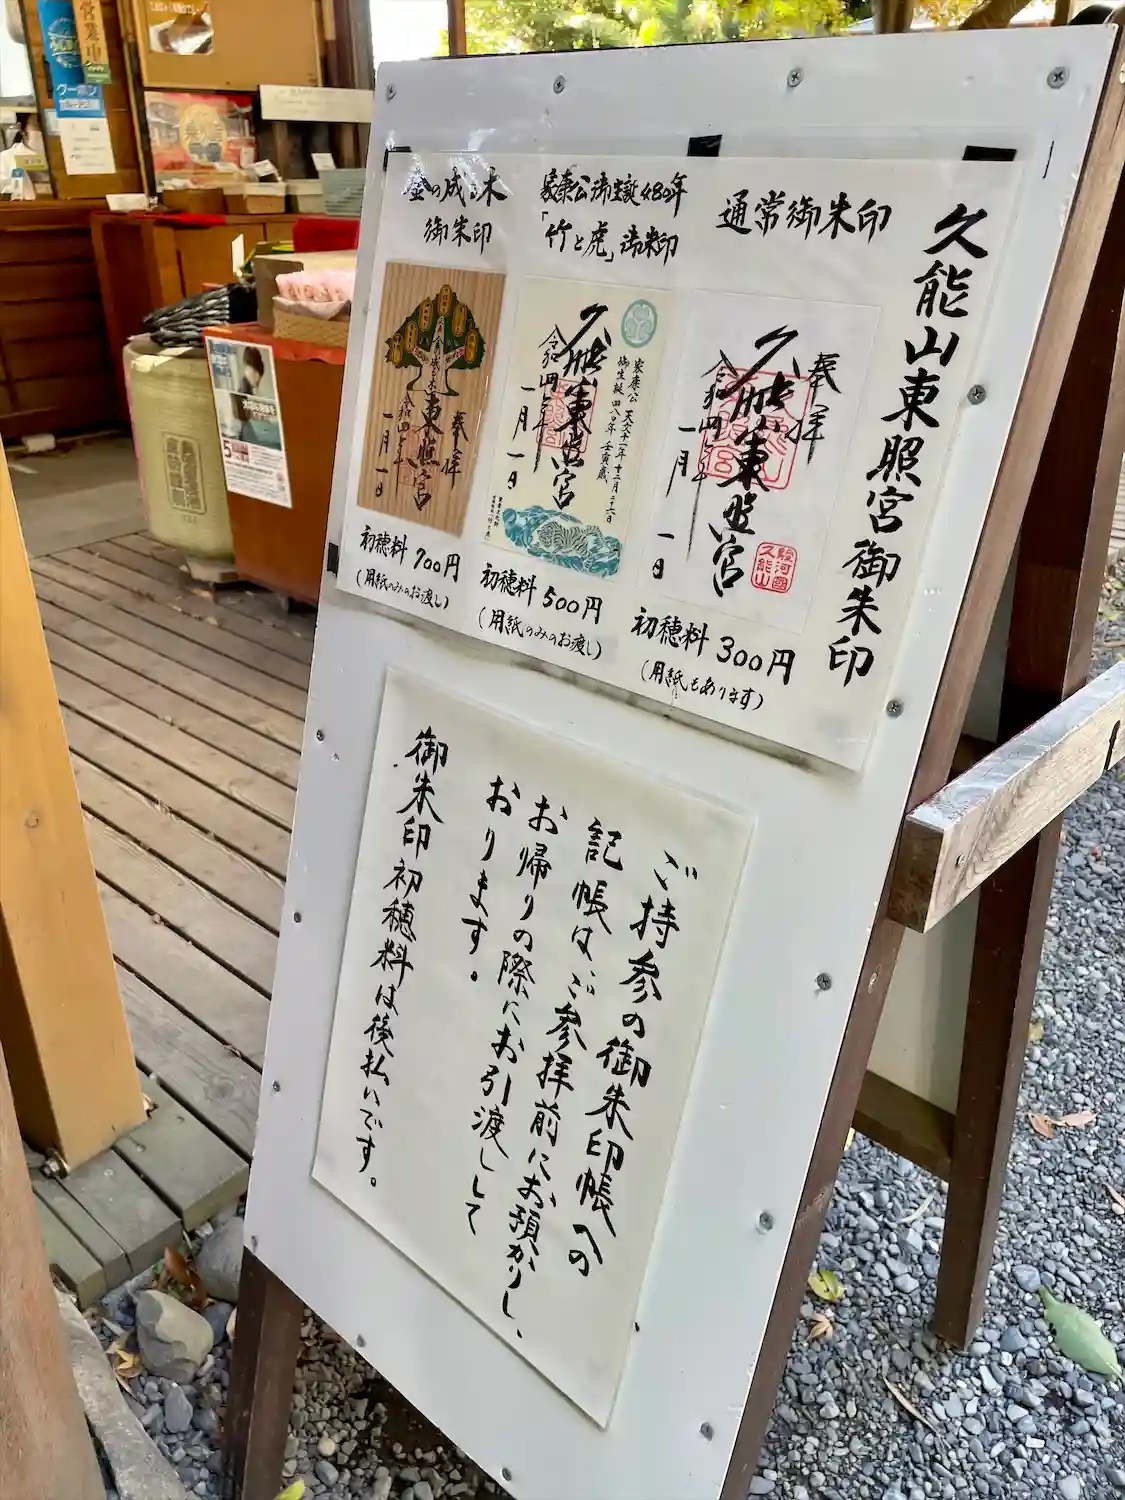 久能山東照宮御朱印
通常御朱印
奉拝
久能山東照宮
令和四年
一月一日
駿河國
久能山
初穂料 300円
(用紙もあります)
家康公御生誕480年
「竹と虎」御朱印
久能山東照宮
令和四年
一月一日
家康公 天文十一年十二月二十六日
御生誕 四八〇年 壬寅歳
初穂料 500円
(用紙のみのお渡し)
金の成る木
御朱印
奉拝
東照宮
令和四年
一月一日
初穂料 700円
(用紙のみのお渡し)
ご持参の御朱印帳への
記帳はご参拝前にお預かりし、
お帰りの際にお引渡しして
おります。
御朱印初穂料は後払いです。
クーポン